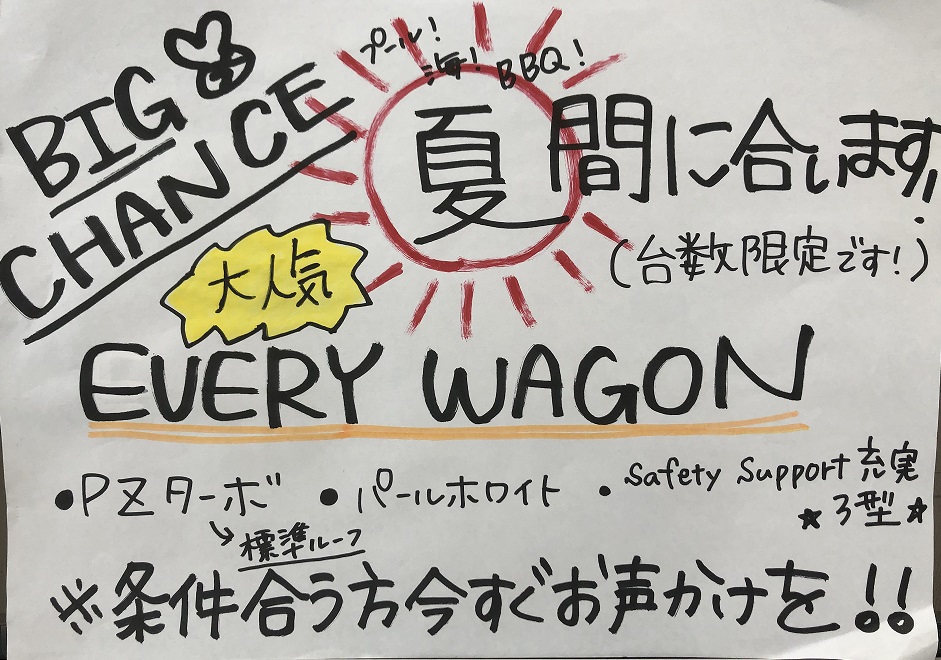 BIG
CHANCE
プール!
海!
BBQ!
夏間に合います!
(台数限定です!)
大人気
EVERY WAGON
•PZターボ •パールホワイト •Safety Support充実
→標準ルーフ
★3型★
※条件合う方今すぐお声かけを!!